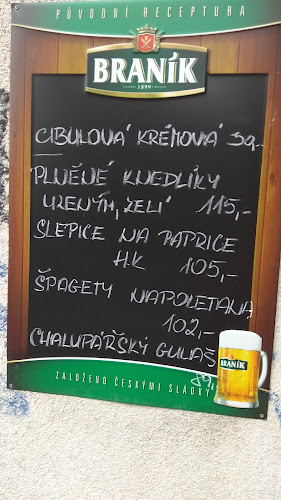 PŮVODNÍ RECEPTURA
BRANÍK
1899
CIBULOVÁ KRÉMOVÁ 39,-
PLNĚNÉ KNEDLÍKY
UZENÝM, ZELÍ 115,-
SLEPICE NA PAPRICE
H.K 105,-
ŠPAGETY NAPOLETANA
102,-
CHALUPÁŘSKÝ GULÁŠ
89,-
BRANÍK
ZALOŽENO ČESKÝMI SLÁDKY